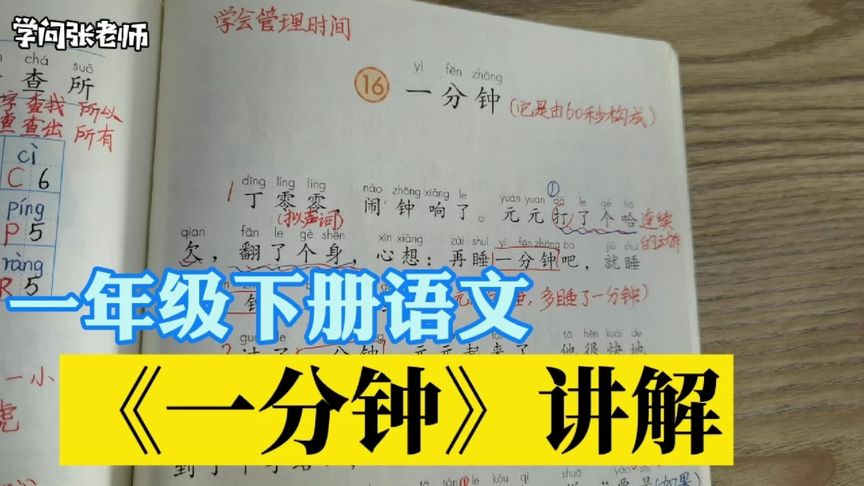 学问张老师
学会管理时间
chá suǒ
查所
字 查找 所以
查 查出 所有
cì
C 6
píng
P 5
ràng
R 5
一小
虎
yì fēn zhōng
16 一分钟(它是由60秒构成)
dīng líng líng nào zhōng xiǎng le yuán yuan dǎ le gè hā
1 丁零零,闹钟响了。元元打了个哈 连续
(拟声词) 的动作
qian fān le gè shēn xīn xiǎng zài shuì yì fēn zhōng ba jiù shuì
欠,翻了个身,心想:再睡一分钟吧,就睡
钟 多睡了一分钟)
一年级下册语文
tā hěn kuài de
2 过了一分钟,元元起来了。他很快地
《一分钟》讲解
le kǒu qì
要是(如果)